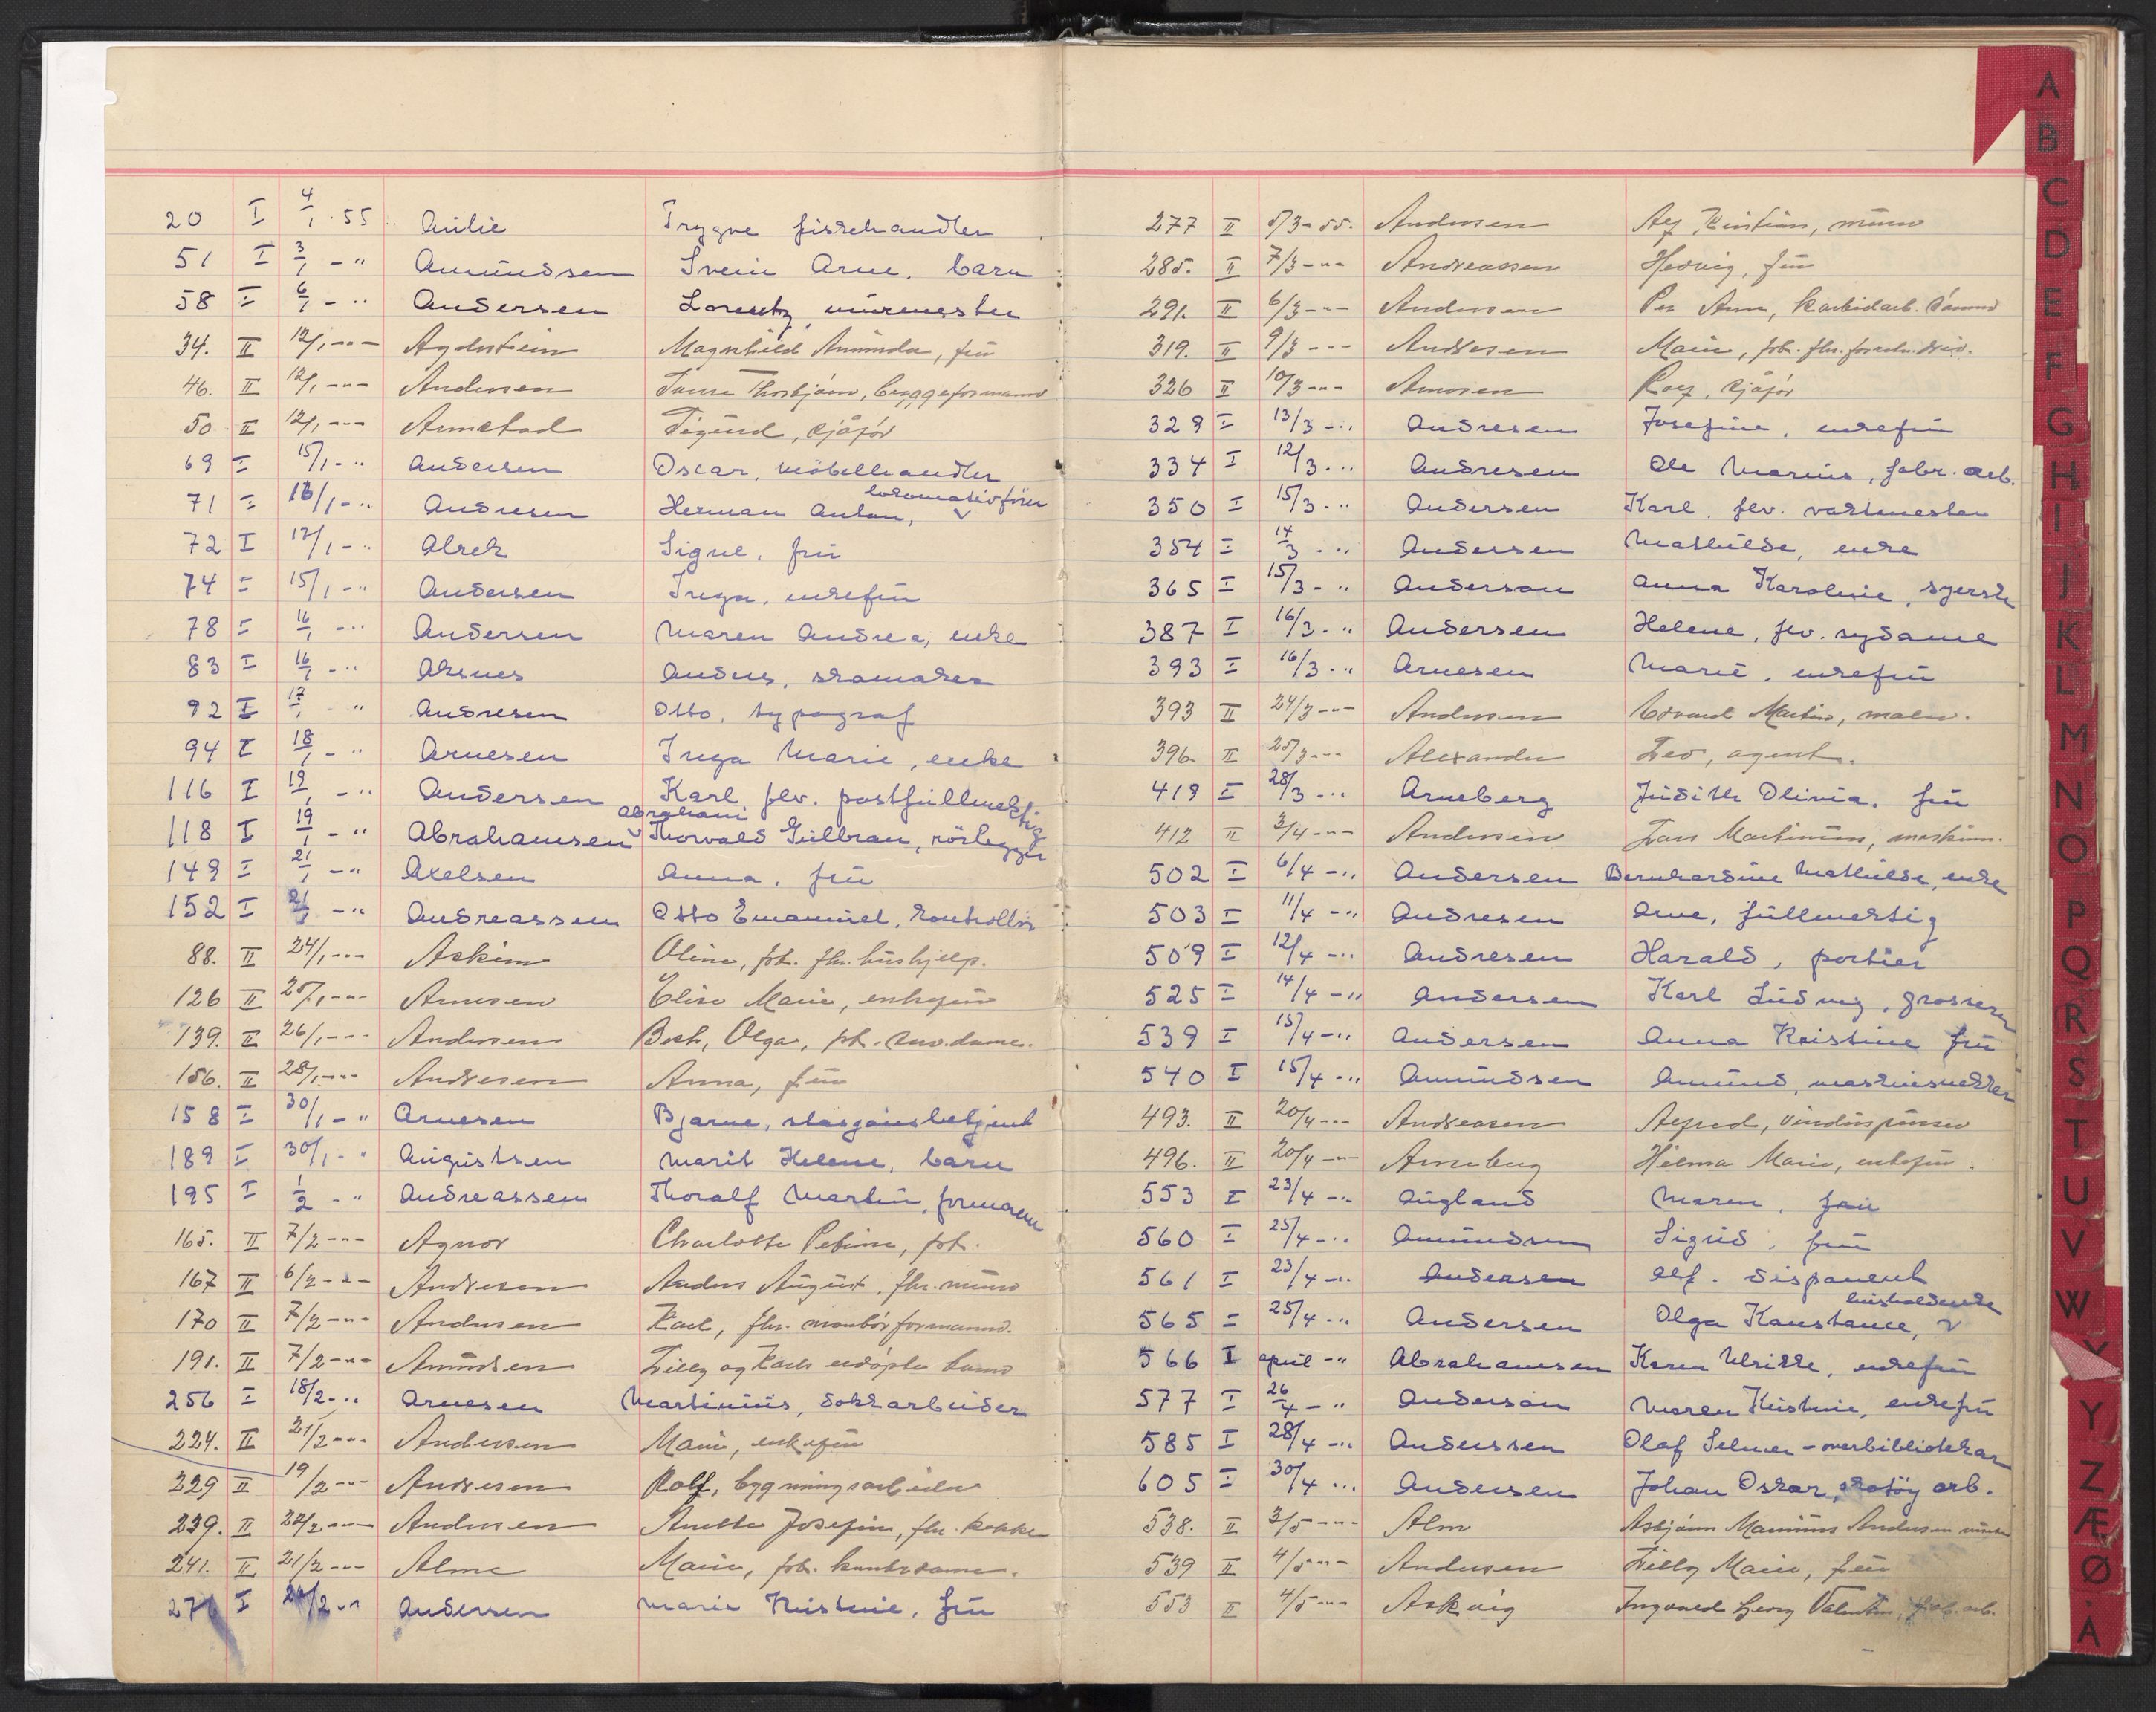 20 I 4/1 - 55 Anilie Trygve fiskehandler
51 I 3/1 - " Amundsen Svein Arne, barn
58 I 6/1 - " Andersen Lorentz, murmester
34. II 12/1 - " - Agdestein Magnhild Amanda, fru
46. II 12/1 - " - Andersen Thorbjørn, byggeformann
50 II 12/1 - " - Armstad Sigurd, sjåfør
69 I 15/1 - " Andersen Oscar, møbelhandler
71 I 16/1 - " Andresen Herman Anton, lokomotivfører
72 I 12/1 - " Alrek Signe, fru
74 I 15/1 - " Andersen Inga, enkefru
78 I 16/1 - " Andersen Maren Andrea, enke
83 I 16/1 - " Aksnes Anders, skomaker
92 I 17/1 " Andresen Otto, typograf
94 I 18/1 - " Arnesen Inga Marie, enke
116 I 19/1 - " Andersen Karl, flv. postfullmektig
118 I 19/1 - " Abrahamsen Abraham Thorvald Gulbran, rørlegger
149 I 21/1 - " Axelsen Anna, fru
152 I 21/1 - " Andreassen Otto Emanuel, kontrollør
88. II 24/1 - " - Askim Oline, fvh. fhv. hushjelp.
126 II 25/1 - " - Arnesen Elise Marie, enkefru
139. II 26/1 - " - Andersen Borh, Olga, frk. avd. dame.
156. II 28/1 - " - Andresen Anna, fru
158 I 30/1 - " Arnesen Bjarne, stasjonsbetjent
189 I 30/1 - " Augustsen Marit Helene, barn
195 I 1/2 - " Andreassen Thoralf Martin, formann
165. II 7/2 - " - Agnor Charlotte Petrine, frk.
167 II 6/2 - " - Andresen Anders August, fhv. murer
170 II 7/2 - " - Andersen Karl, fhv. montørformann.
191. II 7/2 - " - Amundsen Lilly og Karls udøpte barn
256 I 18/2 - " Arnesen Martinius, dokkarbeider
224. II 21/2 - " - Andersen Marie, enkefru
229 II 19/2 - " - Andresen Rolf, bygningsarbeider
239. II 22/2 - " - Andersen Anette Josefine, fhv. kokke
241. II 21/2 - " - Alme Marie, frk. kontordame.
276 I 24/2 - " Andersen Marie Kristine, fru
277 II 5/3 - 55. Andersen Alf Kristian, murer
285. II 7/3 - " - Andreassen Hedvig, fru
291. II 6/3 - " - Andersen Per Arne, karbidarb.
319. II 9/3 - " - Andresen Marie, frk. fhv.
326 II 10/3 - " - Amosen Rolf, sjåfør
329 I 13/3 - " Andresen Josefine, enkefru
334 I 12/3 - " Andresen Ole Marius, fabr. arb.
350 I 15/3 - " Andersen Karl, flv. vaktmester
354 I 14/3 - " Andersen Mathilde, enke
365 I 15/3 - " Anderson Anna Karoline, syerske
387 I 16/3 - " Andersen Helene, flv. sydame
393 I 16/3 - " Arnesen Marie, enkefru
393 II 24/3 - " - Andersen Edvard Martin, maler.
396. II 25/3 - " - Alexander Leo, agent.
419 I 28/3 - " Arneberg Judith Olivia, fru
412 II 3/4 - " - Andersen Lars Martinius, maskinm.
502 I 6/4 - " Andersen Bernhardine Mathilde, enke
503 I 11/4 - " Andresen Arne, fullmektig
509 I 12/4 - " Andresen Harald, portier
525 I 14/4 - " Andersen Karl Ludvig, grosserer
539 I 15/4 - " Andersen Anna Kristine fru
540 I 15/4 - " Amundsen Amund, maskinsnekker
493. II 20/4 - " - Andreasen Alfred, vinduspusser
496. II 20/4 - " - Arneberg Hilma Marie, enkefru.
553 I 23/4 - " Augland Maren, fru
560 I 25/4 - " Amundsen Sigrid, fru
561 I 23/4 - " Andersen Alf. disponent
565 I 25/4 - " Andersen Olga Konstance, husholderske
566 I april - " Abrahamsen Karen Ulrikke, enkefru
577 I 26/4 - " Anderson Maren Kristine, enkefru
585 I 28/4 - " Anderssen Olaf Selmer - overbibliotekar
605 I 30/4 - " Andersen Johan Oskar, skotøy arb.
538. II 3/5 - " - Alm Asbjørn Magnus Andersen
539 II 4/5 - " - Andersen Lilly Marie, fru
553 II 4/5 - " - Askvig Ingvald Georg Valentin, fab. arb.
A
B
C
D
E
F
G
H
I
J
K
L
M
N
O
P
Q
R
S
T
U
V
W
Y
Z
Æ
Ø
Å